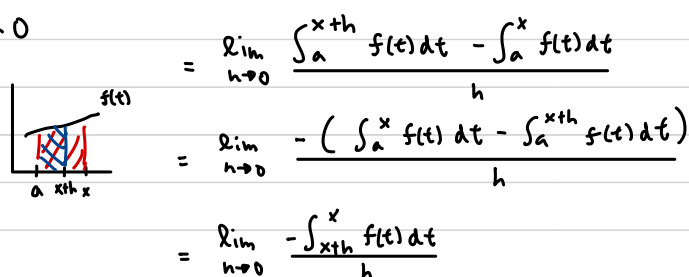 0
= lim h→0 ∫_a^{x+h} f(t) dt - ∫_a^x f(t) dt / h
f(t)
a x+h x
= lim h→0 -( ∫_a^x f(t) dt - ∫_a^{x+h} f(t) dt ) / h
= lim h→0 -∫_{x+h}^x f(t) dt / h